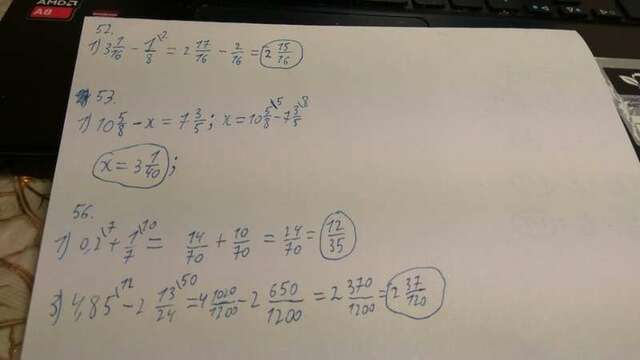 AMD
A8
52.
1) 3 1/16 - 1/8 \2 = 2 17/16 - 2/16 = 2 15/16
53.
1) 10 5/8 - x = 7 3/5 ; x = 10 5/8 \5 - 7 3/5 \8
x = 3 1/40 ;
56.
1) 0,2 \7 + 1/7 \10 = 14/70 + 10/70 = 24/70 = 12/35
3) 4,85 \12 - 2 13/24 \50 = 4 1020/1200 - 2 650/1200 = 2 370/1200 = 2 37/120